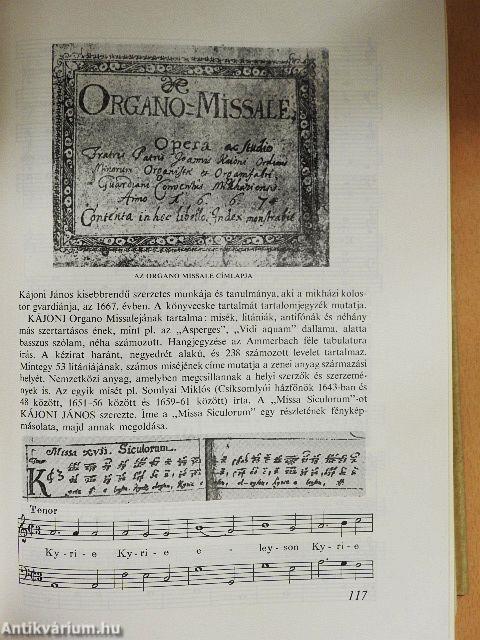 ORGANO=MISSALE,
Opera ac Studio
Fratris Patris Joannis Kaioni Ordinis
Minorum Organistæ et Organifabri
Guardiani Conventus Mikhaziensis
Anno 1 6 6 7
Contenta in hoc libello, Index monstrabit
AZ ORGANO MISSALE CÍMLAPJA
Kájoni János kisebbrendű szerzetes munkája és tanulmánya, aki a mikházi kolos-
tor gvardiánja, az 1667. évben. A könyvecske tartalmát tartalomjegyzék mutatja.
KÁJONI Organo Missalejának tartalma: misék, litániák, antifónák és néhány
más szertartásos ének, mint pl. az „Asperges”, „Vidi aquam” dallama, alatta
basszus szólam, néha számozott. Hangjegyzése az Ammerbach féle tabulatura
írás. A kézirat haránt, negyedrét alakú, és 238 számozott levelet tartalmaz.
Mintegy 53 litániájának, számos miséjének címe mutatja a zenei anyag származási
helyét. Nemzetközi anyag, amelyben megcsillannak a helyi szerzők és szerzemé-
nyek is. Az egyik misét pl. Somlyai Miklós (Csíksomlyói házfőnök 1643-ban és
48 között, 1651–56 között és 1659–61 között) írta. A „Missa Siculorum”-ot
KÁJONI JÁNOS szerezte. Íme a „Missa Siculorum” egy részletének fénykép-
másolata, majd annak megoldása.
Missa xvii. Siculorum.
Tenor
Ky - ri - e Ky - ri - e e - ley - son Ky - ri - e
117
Antikvárium.hu